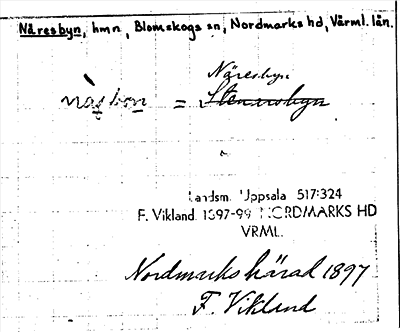 Näresbyn, hmn, Blomskogs sn, Nordmarks hd, Värml. län.
Näresbyn
= Stenersbyn
Landsm. Uppsala 517:324
F. Vikland. 1897-99. NORDMARKS HD
VRML.
Nordmarks härad 1897
F. Vikland